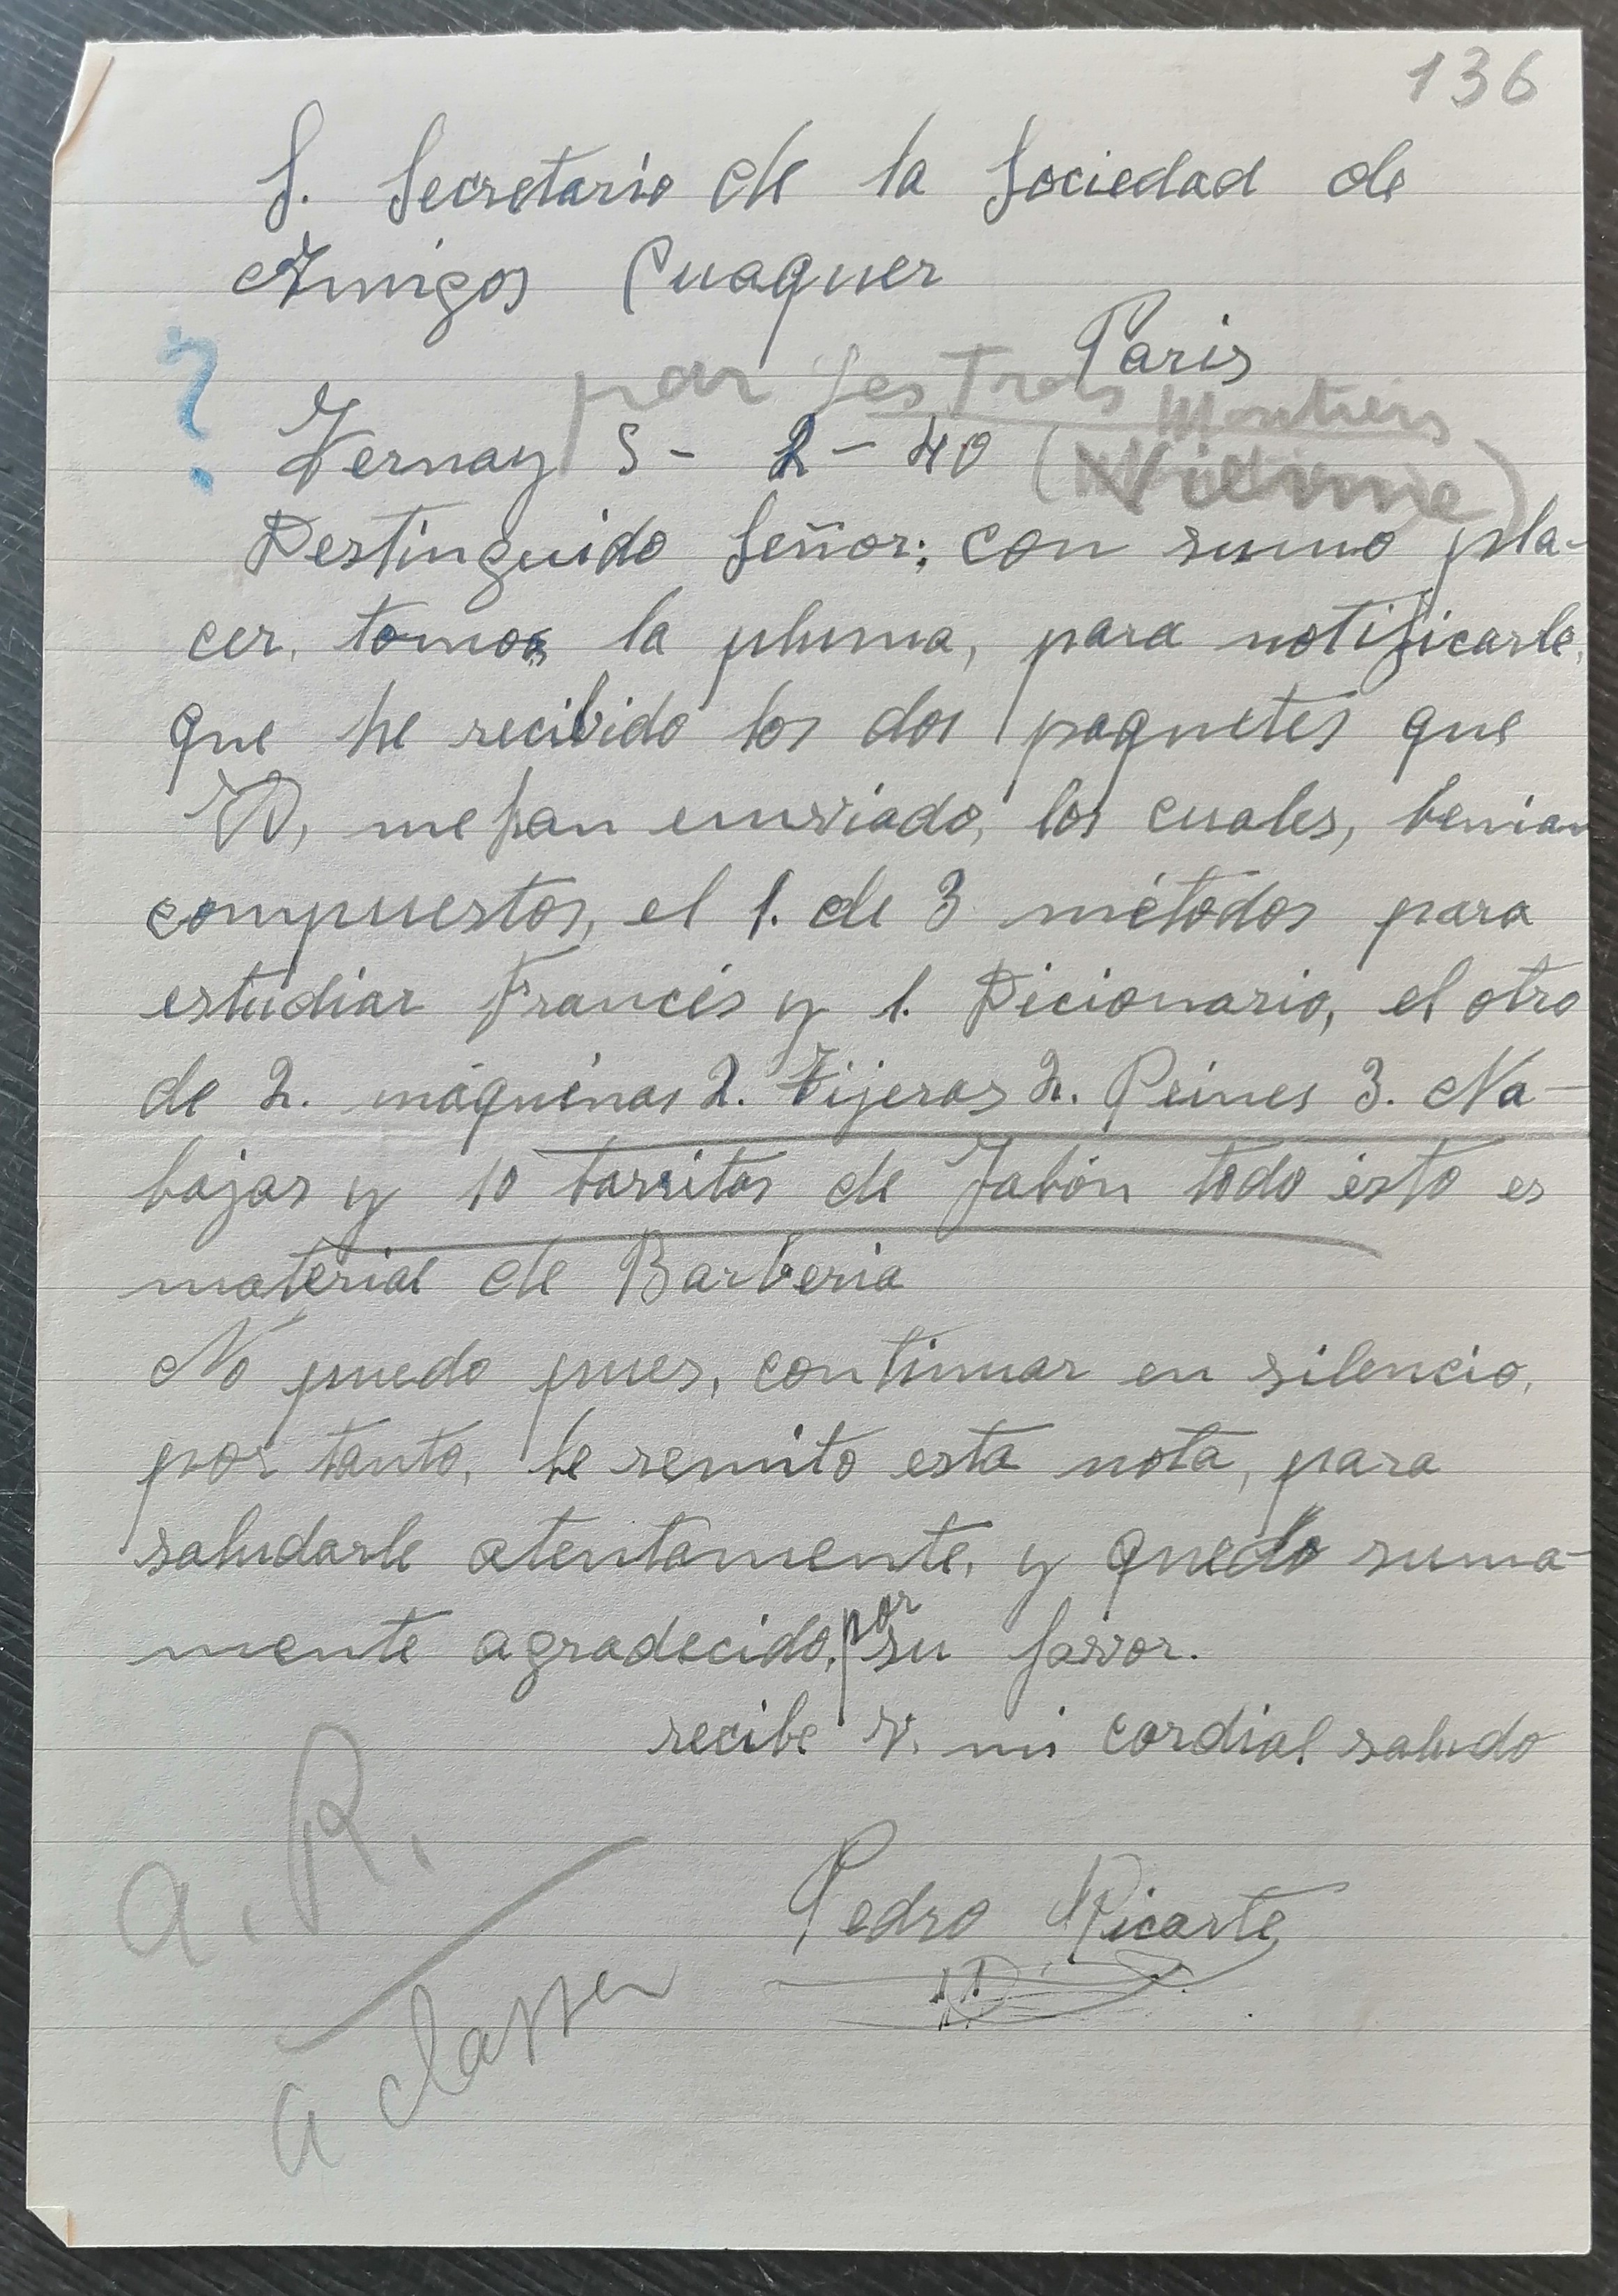 136
S. Secretario de la Sociedad de
Amigos Cuaquer
Paris
? par Les Trois Moutiers
Vernay 5 - 2 - 40 (Vienne)
Destinguido Señor; con sumo pla-
cer, tomo la pluma, para notificarle,
que he recibido los dos paquetes que
V, me han enviado, los cuales, benian
compuestos, el 1. de 3 métodos para
estudiar Francés y 1. Dicionario, el otro
de 2. máquinas 2. Tijeras 2. Peines 3. Na-
bajas y 10 tarritos de Jabón todo ésto es
material de Barberia
No puedo pues, continuar en silencio,
por tanto, le remito esta nota, para
saludarle atentamente, y quedo suma-
mente agradecido, por su favor.
recibe V. mi cordial saludo
a. R.
Pedro Ricarte
a classer